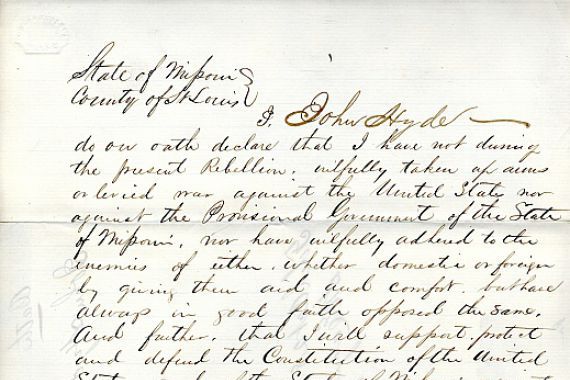 State of Missouri
County of St Louis
I, John Hyde
do on oath declare that I have not during
the present Rebellion, wilfully taken up arms
or levied war against the United States nor
against the Provisional Goverment of the State
of Missouri, nor have wilfully adhered to the
enemies of either, whether domestic or foreign
by giving them aid and comfort, but have
always in good faith opposed the same.
And further, that I will support, protect
and defend the Constitution of the United
States and of the State of Missouri